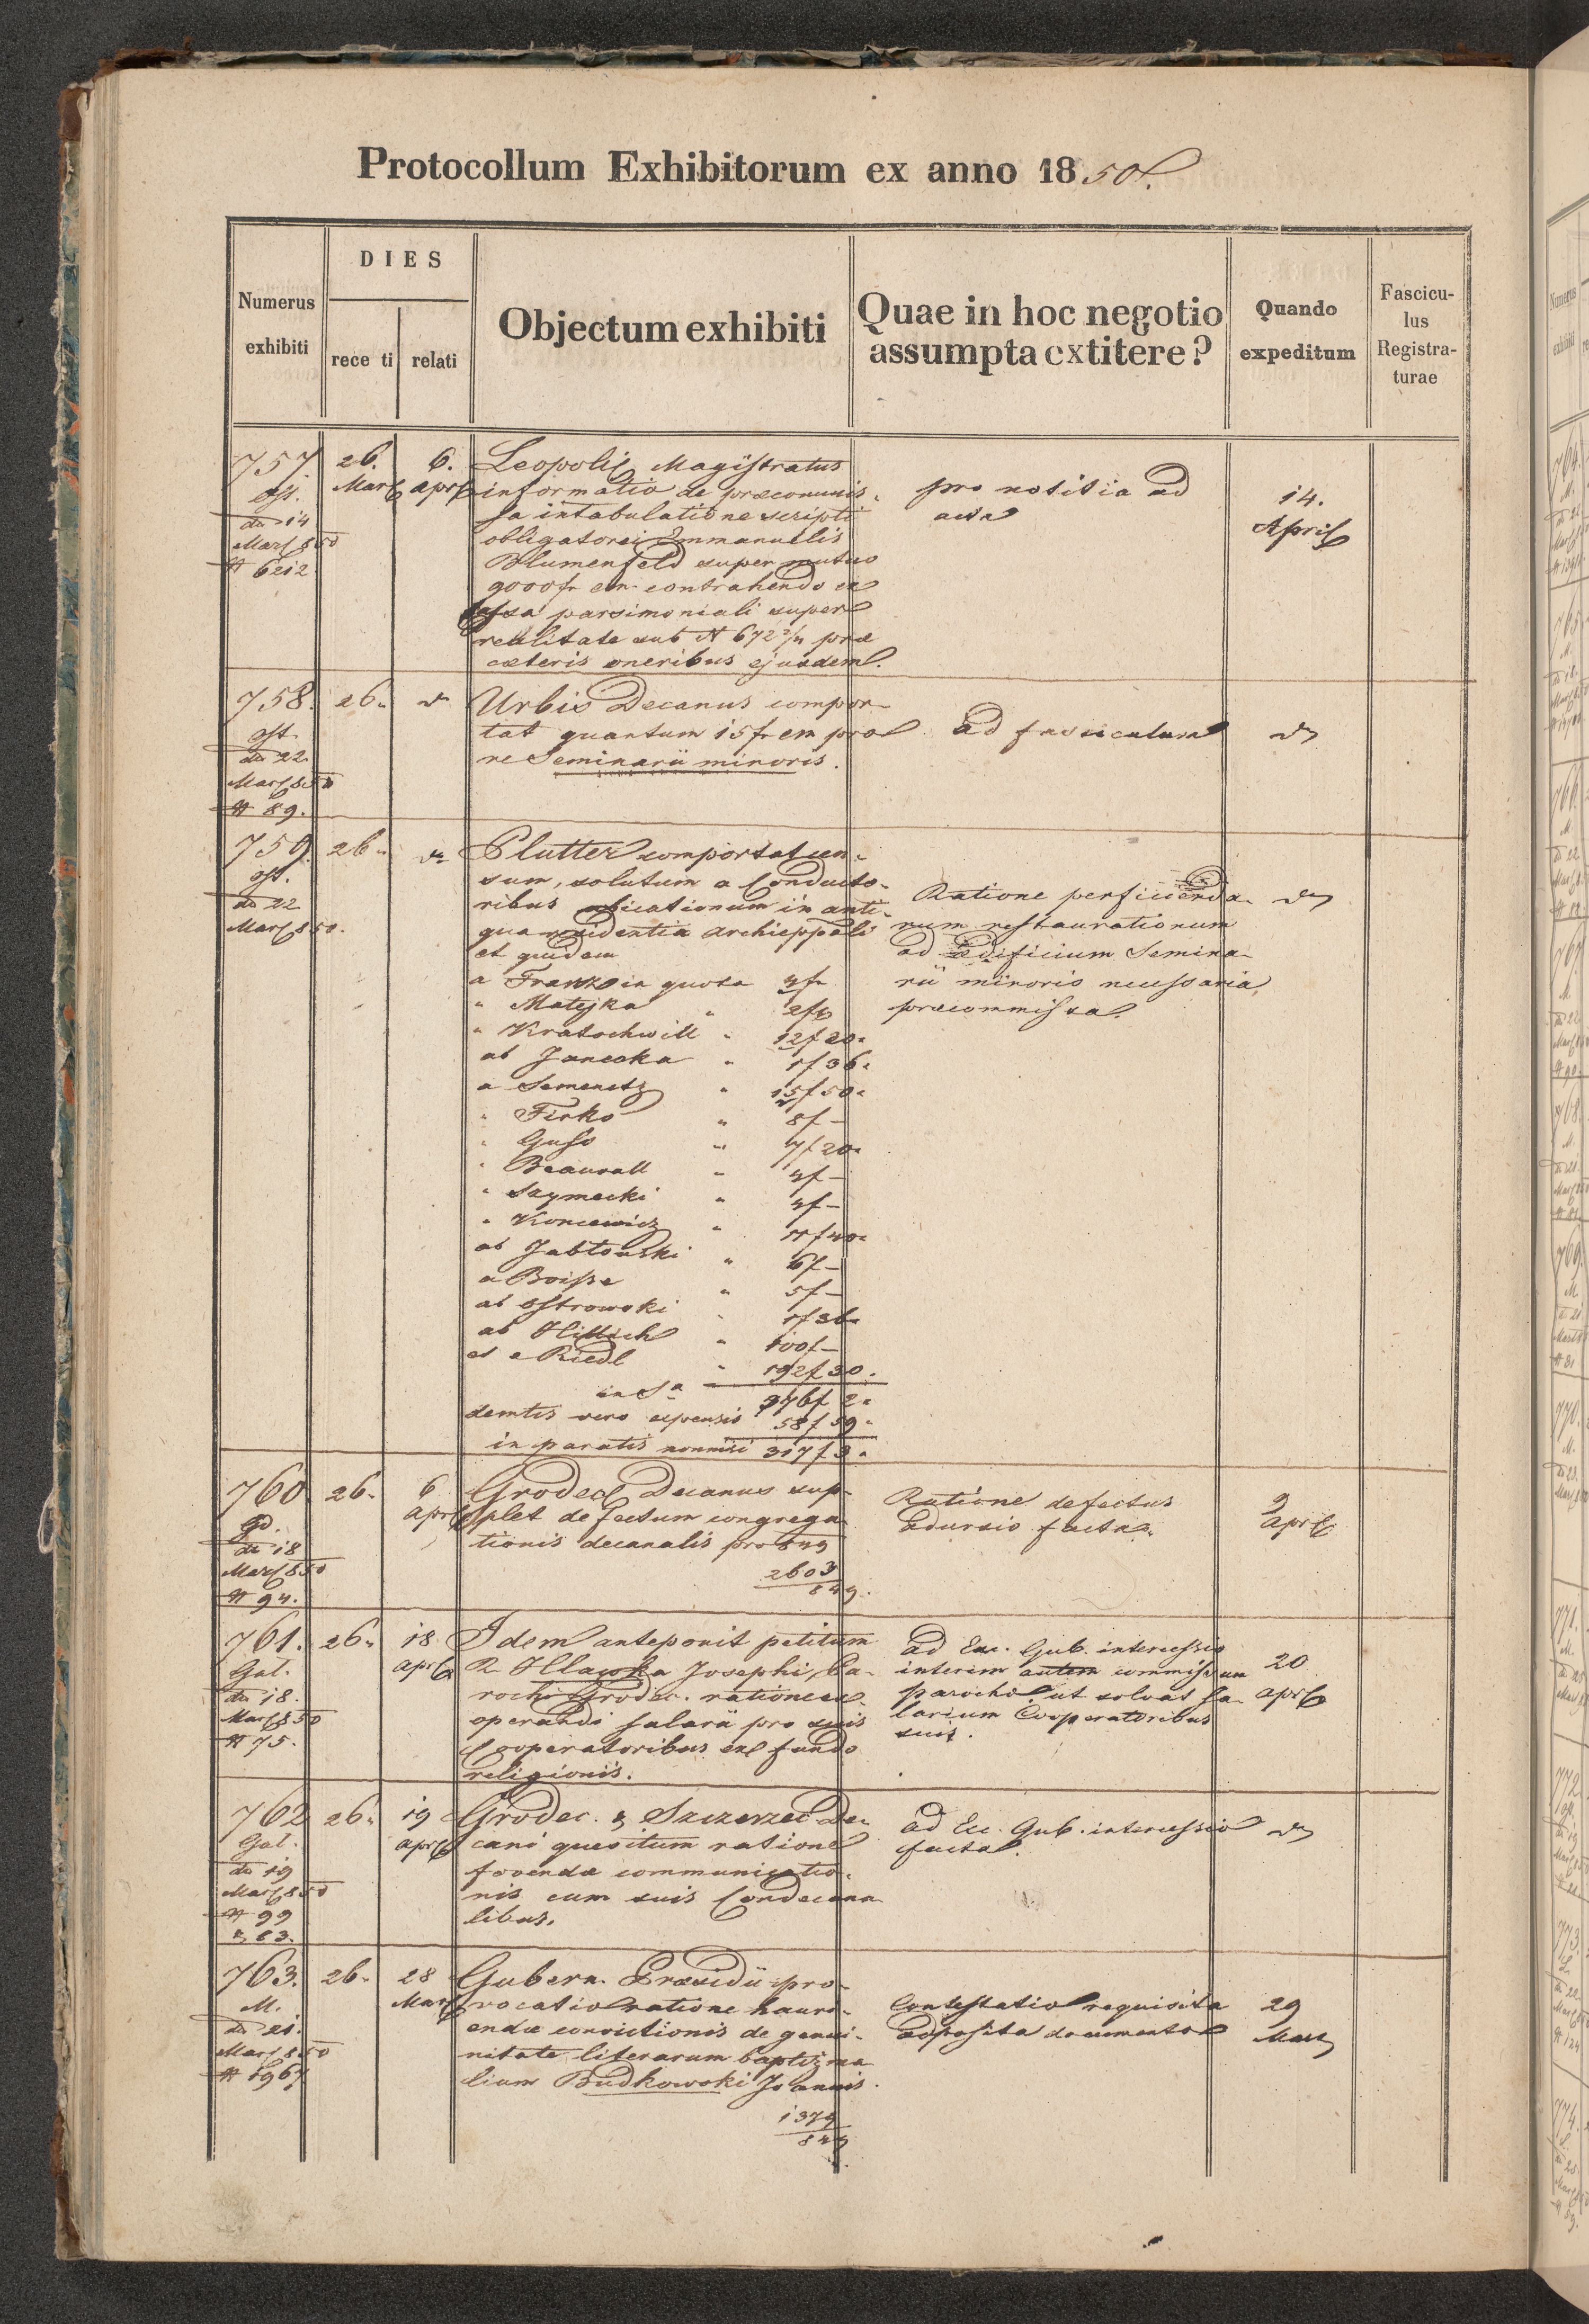 Protocollum Exhibitorum ex anno 1850.
Numerus exhibiti
DIES
rece ti
relati
Objectum exhibiti
Quae in hoc negotio assumpta extitere?
Quando expeditum
Fascicu-
lus
Registra-
turae
757.
do 14
Mart 850
N 6212
26.
Mart
6.
April
Leopoli Magistratus
informatio de præcommis-
sa intabulatione scripti
obligatorei Immanuelis
Blumenfeld super mutuo
9000 fr cm contrahendo ex
cassa parsimoniali super
realitate sub N 672 2/4 præ
cæteris oneribus ejusdem.
pro notitia ad
acta
14.
April
758.
do 22
Mart 850
N 89.
26.
do
Urbis Decanus compor-
tat quantum 15 fr cm pro
re Seminarii minoris.
ad fasciculum
do
759.
do 22
Mart 850.
26.
do
Plutter comportat cen-
sum, solutum a Conducto-
ribus in anti-
qua residentia archieppali
et quidem
a Franz in quota 4 fr
" Matejka " 2 fr
" Kratochwill " 12 f 20
ab Janeska " 1 f 36
a Semenetz " 15 f 50
" Firko " 8 f -
" Guss " 7 f 20
" Beauvall " 4 f -
" Szymecki " 4 f -
" Koncewicz " 11 f 40
ab Jabłonski " 6 f -
a Boisse " 5 f -
ab Ostrowski " 1 f 36
ab Hittich " 100 f -
et a Riedl " 192 f 30
in Sa 376 f 2
demtis vero expensis 58 f 59
in paratis nonnisi 317 f 3
Ratione perficienda-
rum restaurationum
ad ædificium Semina-
rii minoris necessaria
præcommissa.
do
760
do 18
Mart 850
N 94.
26.
6
April
Grodec Decanus sup-
plet defectum congrega-
tionis decanalis pro 849
2603
849.
Ratione defectus
adursio facta.
9
April
761.
Gal.
do 18.
Mart 850
N 75.
26.
18
April
Idem anteponit petitum
R. Hlawka Josephi, Pa-
rochi Grodec. ratione ex-
operandi salarii pro suis
Cooperatoribus ex fundo
religionis.
ad Exc. Gub. intercessio
interim autem commissum
parocho ut solvat sa-
larium Cooperatoribus
suis.
20
April
762
Gal.
do 19
Mart 850
N 99
& 83.
26.
19
April
Grodec. & Szczerzec De-
cani quæsitum ratione
fovendæ communicatio-
nis cum suis Condecana
libus.
ad Exc. Gub. intercessio
facta.
do
763.
M.
do 21.
Mart 850
N 1967
26.
28
Mart
Gubern. Præsidii pro-
vocatio ratione hauri-
endæ convictionis de genui-
nitate literarum baptizma
lium Budkowski Joannis.
1379
849
Contestatio requisita
apposita documento
29
Mart